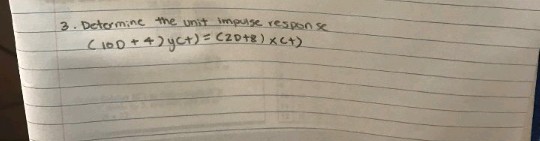 3. Determine the unit impulse response
(10D + 4) y(t) = (2D+8) x(t)